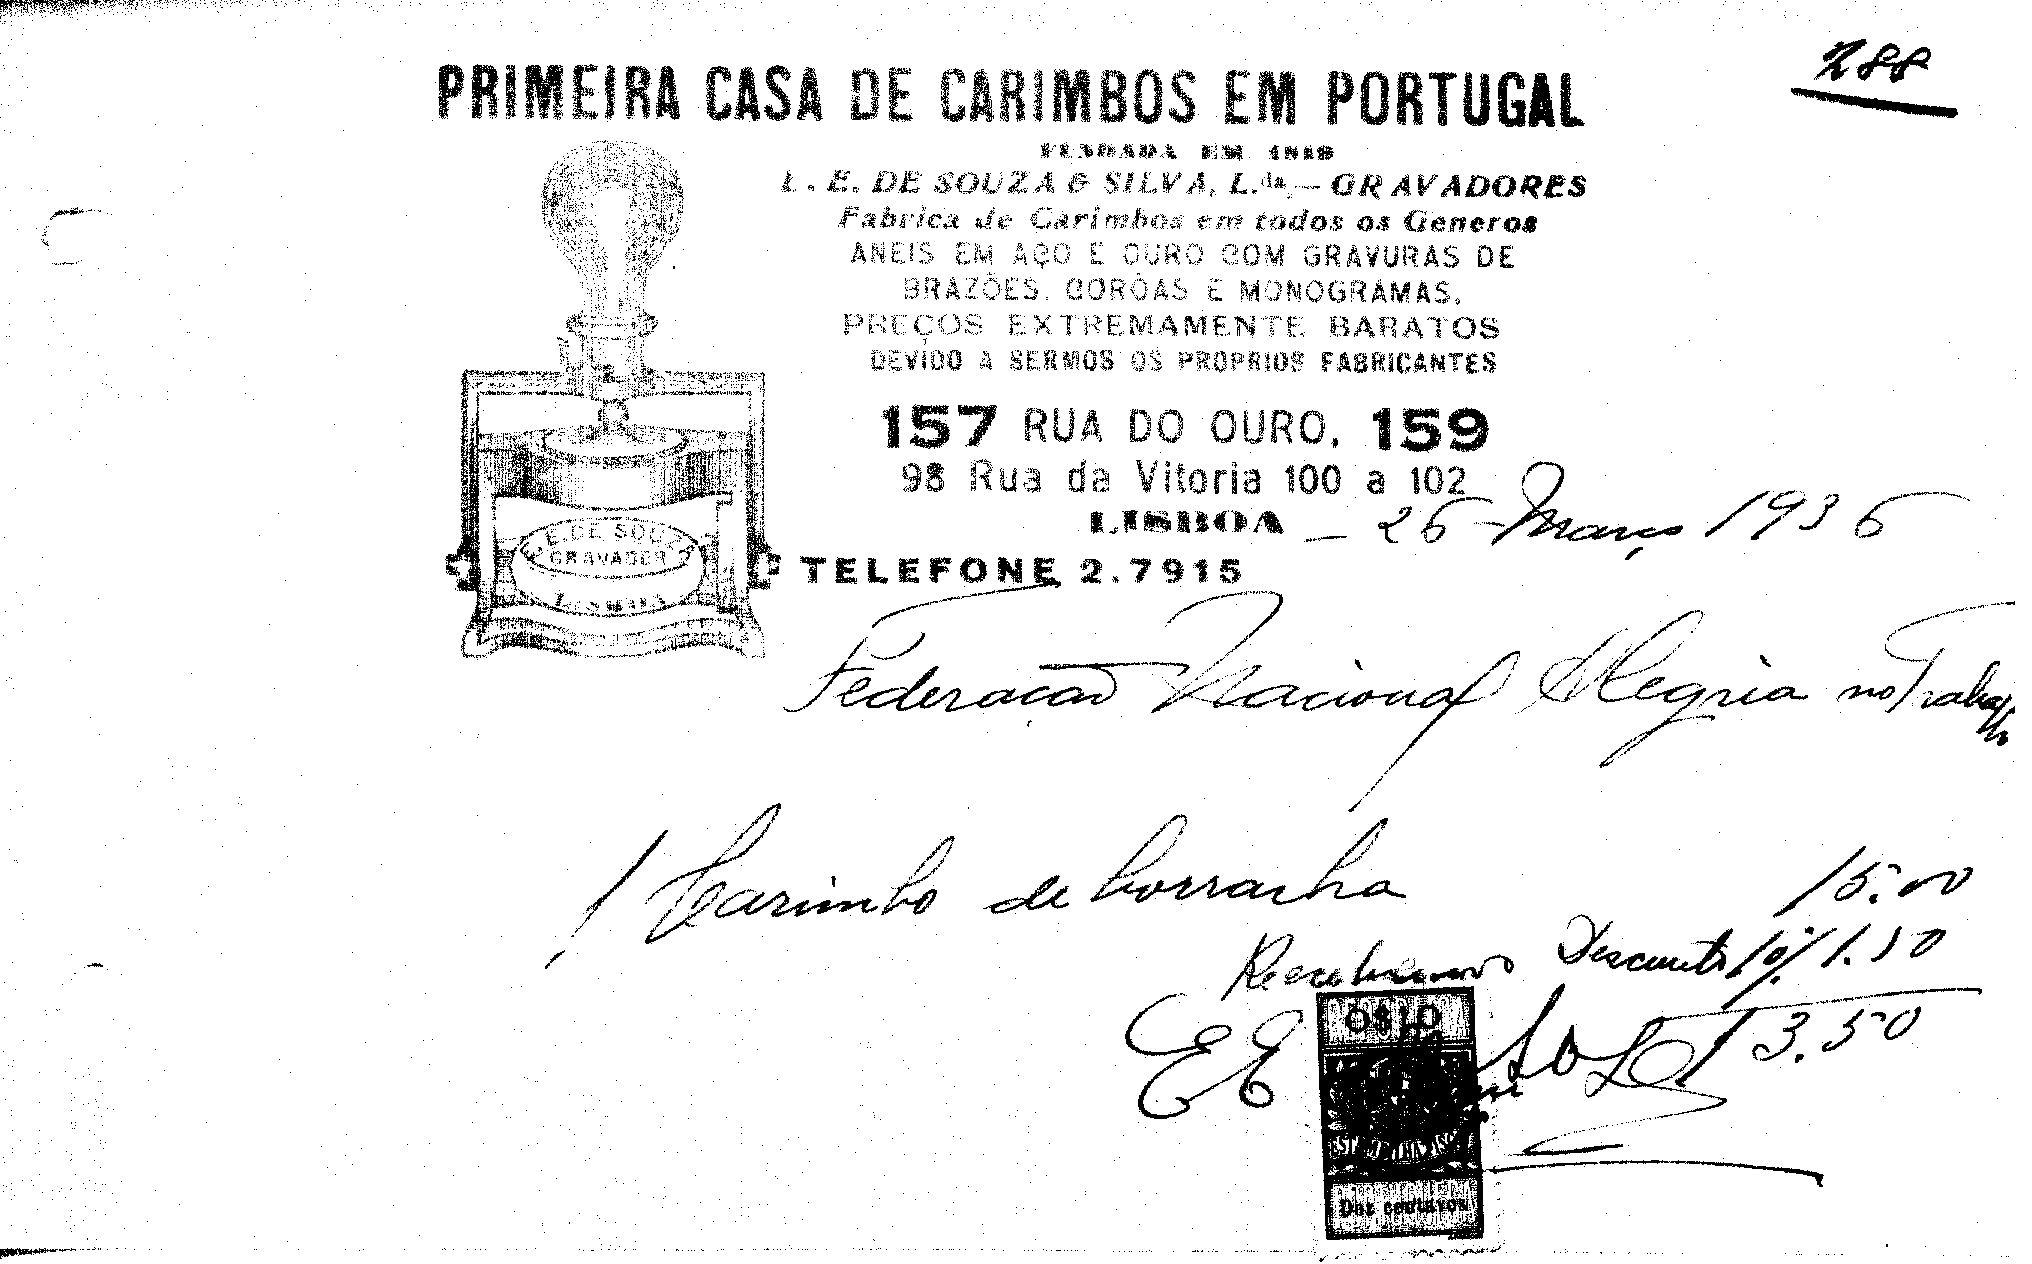 288
PRIMEIRA CASA DE CARIMBOS EM PORTUGAL
FUNDADA EM
L. E. DE SOUZA & SILVA, L.da, — GRAVADORES
Fabrica de Carimbos em todos os Generos
ANEIS EM AÇO E OURO COM GRAVURAS DE
BRAZÕES, CORÔAS E MONOGRAMAS.
PREÇOS EXTREMAMENTE BARATOS
DEVIDO A SERMOS OS PROPRIOS FABRICANTES
157 RUA DO OURO, 159
98 Rua da Vitoria 100 a 102
LISBOA — 26 Março 1936
TELEFONE 2.7915
E. DE SOUZA
GRAVADOR
LISBOA
Federacao Nacional Alegria no Trabalho
1 Carimbo de borracha 15.00
Recebemos Desconto 10% 1.50
13.50
0$10
Dez centavos